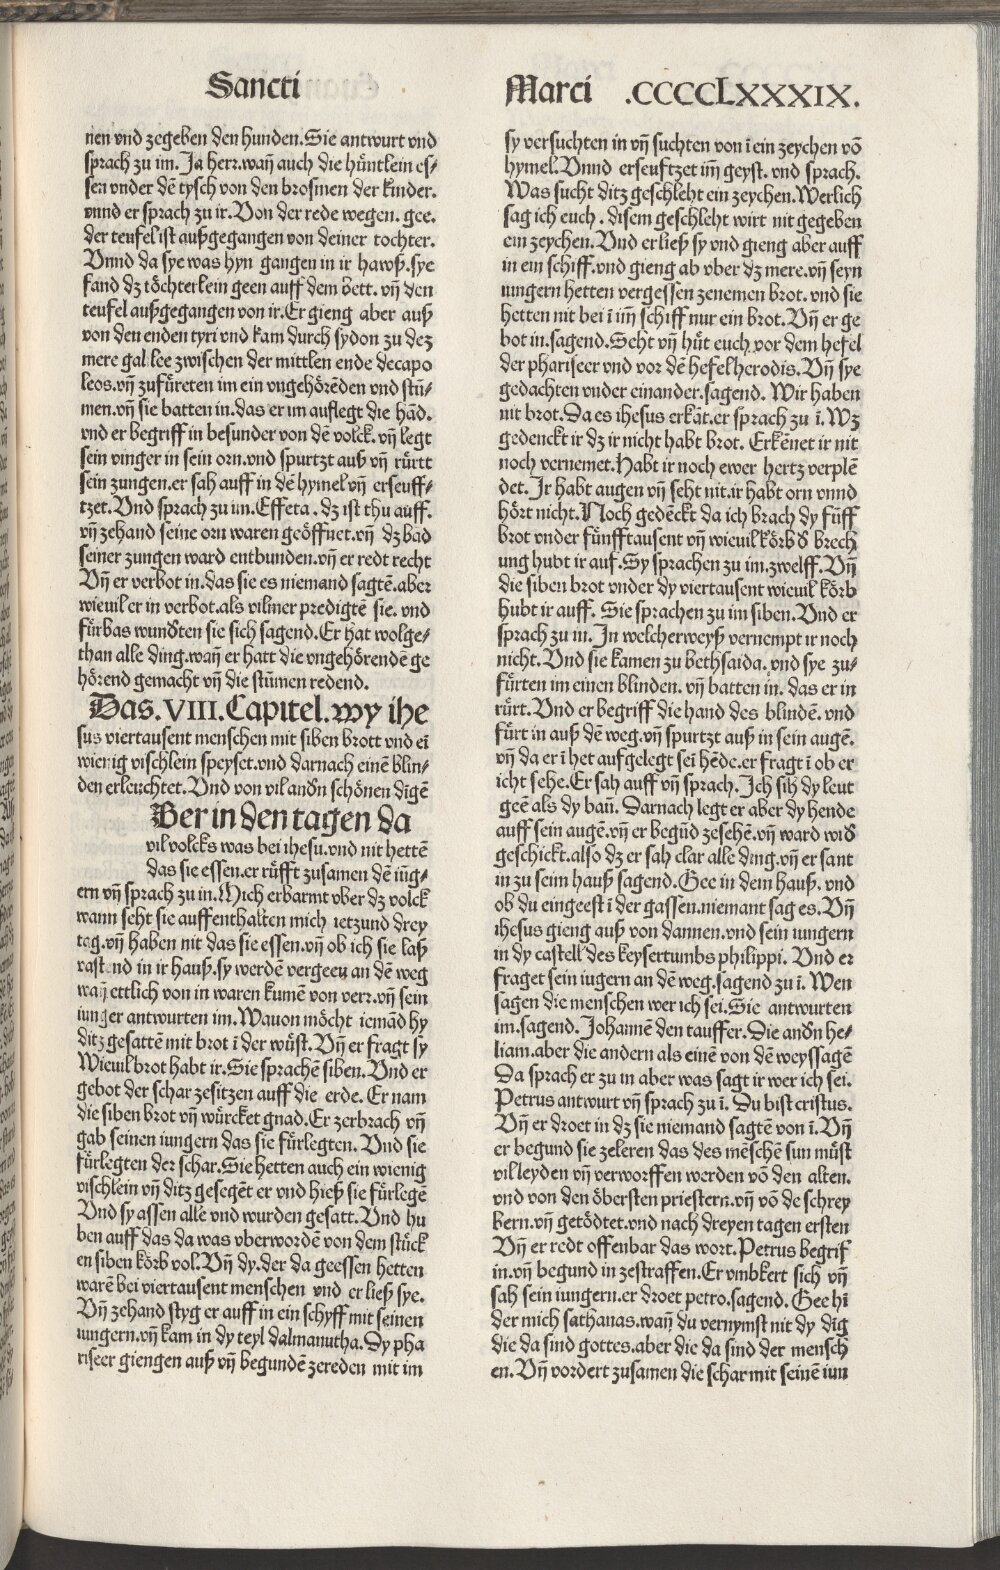 Sancti
Marci .CCCCLXXXIX.
nen vnd zegeben den hunden.Sie antwurt vnd
sprach zu im. Ja herr.wañ auch die hüntlein es⸗
sen vnder dē tysch von den brosmen der kinder.
vnnd er sprach zu ir.Von der rede wegen. gee.
der teufel ist außgegangen von deiner tochter.
Vnnd da sye was hyn gangen in ir hawß.sye
fand dz töchterlein geen auff dem bett. vñ den
teufel außgegangen von ir.Er gieng aber auß
von den enden tyri vnd kam durch sydon zu dez
mere galilee zwischen der mittlen ende decapo
leos.vñ zufüreten im ein vngehörēden vnd stū⸗
men.vñ sie batten in.das er im auflegt die hād.
vnd er begriff in besunder von dē volck.vñ legt
sein vinger in sein orn.vnd spurtzt auß vñ rürtt
sein zungen.er sah auff in dē hymel vñ erseuff⸗
tzet.Vnd sprach zu im.Effeta.dz ist thu auff.
vñ zehand seine orn waren geöffnet.vñ dz bād
seiner zungen ward entbunden.vñ er redt recht
Vñ er verbot in.das sie es niemand sagtē.aber
wieuil er in verbot.als vilmer predigtē sie. vnd
fürbas wundten sie sich sagend.Er hat wolge⸗
than alle ding.wañ er hatt die vngehörendē ge
hörend gemacht vñ die stūmen redend.
Das.VIII.Capitel.wy ihe
sus viertausent menschen mit siben brott vnd eī
wienig vischlein speyset.vnd darnach einē blin⸗
den erleuchtet.Vnd von vil andn schönen dīgē
Ber in den tagen da
vil volcks was bei ihesu.vnd nit hettē
das sie essen.er rüfft zusamen dē iūg⸗
ern vñ sprach zu in.Mich erbarmt vber dz volck
wann seht sie auffenthalten mich ietzund drey
tag.vñ haben nit das sie essen.vñ ob ich sie laß
vastend in ir hauß.sy werdē vergeen an dē weg
wañ ettlich von in waren kumē von verr.vñ sein
iunger antwurten im.Wauon möcht iemād hy
ditz gesattē mit brot ī der wüst.Vñ er fragt sy
Wieuil brot habt ir.Sie sprachē siben.Vnd er
gebot der schar zesitzen auff die erde. Er nam
die siben brot vñ würcket gnad.Er zerbrach vñ
gab seinen iungern das sie fürlegten. Vnd sie
fürlegten der schar.Sie hetten auch ein wienig
vischlein vñ ditz gesegēt er vnd hieß sie fürlegē
Vnd sy assen alle vnd wurden gesatt.Vnd hu
ben auff das da was vberwordē von dem stück
en siben körb vol.Vñ dy.der da geessen hetten
warē bei viertausent menschen vnd er ließ sye.
Vñ zehand styg er auff in ein schyff mit seinen
iungern.vñ kam in dy teyl dalmanutha.Dy pha
riseer giengen auß vñ begundē zereden mit im
sy versuchten in vñ suchten von ī ein zeychen vō
hymel.Vnnd erseuftzet im̄ geyst. vnd sprach.
Was sucht ditz geschleht ein zeychen.Werlich
sag ich euch. disem geschleht wirt nit gegeben
ein zeychen.Vnd er ließ sy vnd gieng aber auff
in ein schiff.vnd gieng ab vber dz mere.vñ seyn
iungern hetten vergessen zenemen brot. vnd sie
hetten nit bei ī im̄ schiff nur ein brot.Vñ er ge
bot in.sagend.Seht vñ hüt euch vor dem hefel
der phariseer vnd vor dē hefel herodis.Vñ sye
gedachten vnder einander.sagend. Wir haben
nit brot.Da es ihesus erkāt.er sprach zu ī.Wz
gedenckt ir dz ir nicht habt brot. Erkēnet ir nit
noch vernemet.Habt ir noch ewer hertz verplē
det. Ir habt augen vñ seht nit.ir habt orn vnnd
hört nicht.Noch gedēckt da ich brach dy fünff
brot vnder fünfftausent vñ wieuil körb d brech
ung hubt ir auf.Sy sprachen zu im.zwelff.Vñ
die siben brot vnder dy viertausent wieuil körb
hubt ir auff. Sie sprachen zu im siben.Vnd er
sprach zu in. In welcherweyß vernempt ir noch
nicht.Vnd sie kamen zu bethsaida. vnd sye zu⸗
fürten im einen blinden. vñ batten in. das er in
rürt.Vnd er begriff die hand des blindē. vnd
fürt in auß dē weg.vñ spurtzt auß in sein augē.
vñ da er ī het aufgelegt sei hēde.er fragt ī ob er
icht sehe.Er sah auff vñ sprach.Ich sih dy leut
geē als dy baū. Darnach legt er aber dy hende
auff sein augē.vñ er begūd zesehē.vñ ward wid
geschickt.also dz er sah clar alle ding.vñ er sant
in zu seim hauß sagend.Gee in dem hauß. vnd
ob du eingeest ī der gassen.niemant sag es.Vñ
ihesus gieng auß von dannen.vnd sein iungern
in dy castell des keysertumbs philippi. Vnd er
fraget sein iugern an dē weg.sagend zu ī. Wen
sagen die menschen wer ich sei.Sie antwurten
im.sagend. Johannē den tauffer.Die andn he⸗
liam.aber die andern als einē von dē weyssagē
Da sprach er zu in aber was sagt ir wer ich sei.
Petrus antwurt vñ sprach zu ī. Du bist cristus.
Vñ er droet in dz sie niemand sagtē von ī.Vñ
er begund sie zeleren das des mēschē sun müst
vil leyden vñ verworffen werden vō den alten.
vnd von den öbersten priestern.vñ vō de schrey
bern.vñ getödtet.vnd nach dreyen tagen ersten
Vñ er redt offenbar das wort.Petrus begrif
in.vñ begund in zestraffen.Er vmbkert sich vñ
sah sein iungern.er droet petro.sagend. Gee hī
der mich sathanas.wañ du vernymst nit dy dīg
die da sind gottes.aber die da sind der mensch
en. Vñ vordert zusamen die schar mit seinē iun